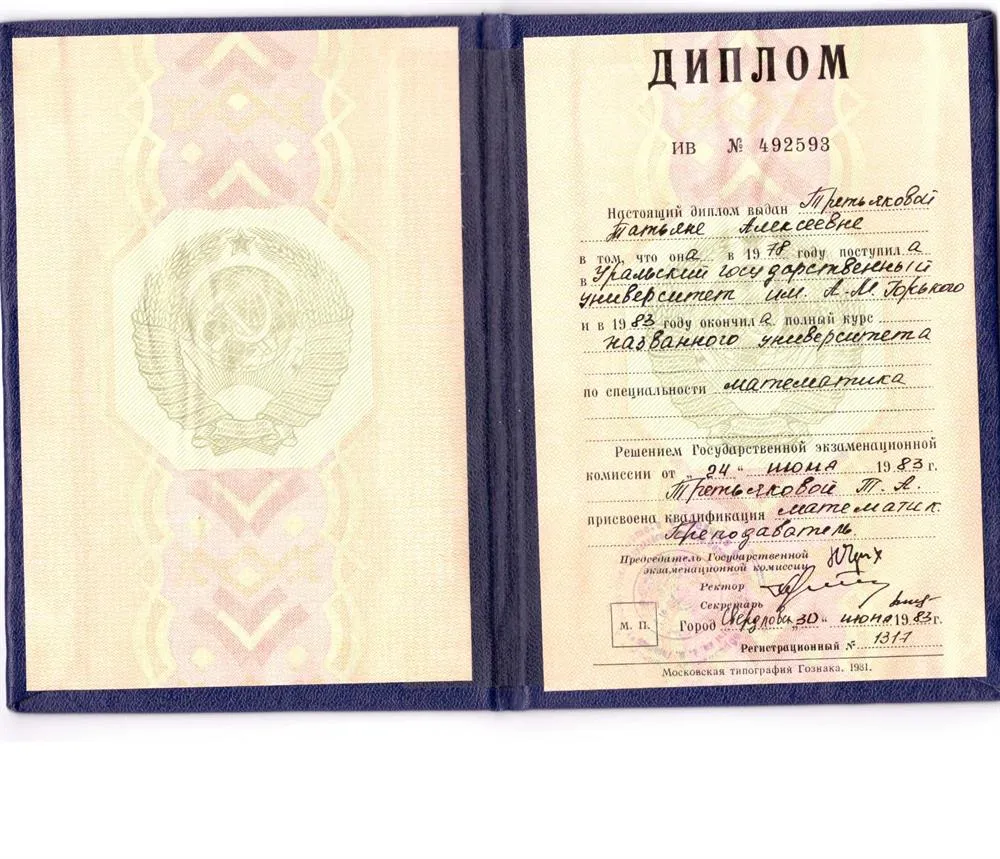 ДИПЛОМ
ИВ № 492593
Настоящий диплом выдан Третьяковой
Татьяне Алексеевне
в том, что она в 1978 году поступила
в Уральский государственный
университет им. А.М. Горького
и в 1983 году окончила полный курс
названного университета
по специальности математика
Решением Государственной экзаменационной
комиссии от „24“ июня 1983 г.
Третьяковой Т. А.
присвоена квалификация математик.
Преподаватель.
Председатель Государственной
экзаменационной комиссии
Ректор
Секретарь
М. П. Город Свердловск „30“ июня 1983 г.
Регистрационный № 1317
Московская типография Гознака. 1981.